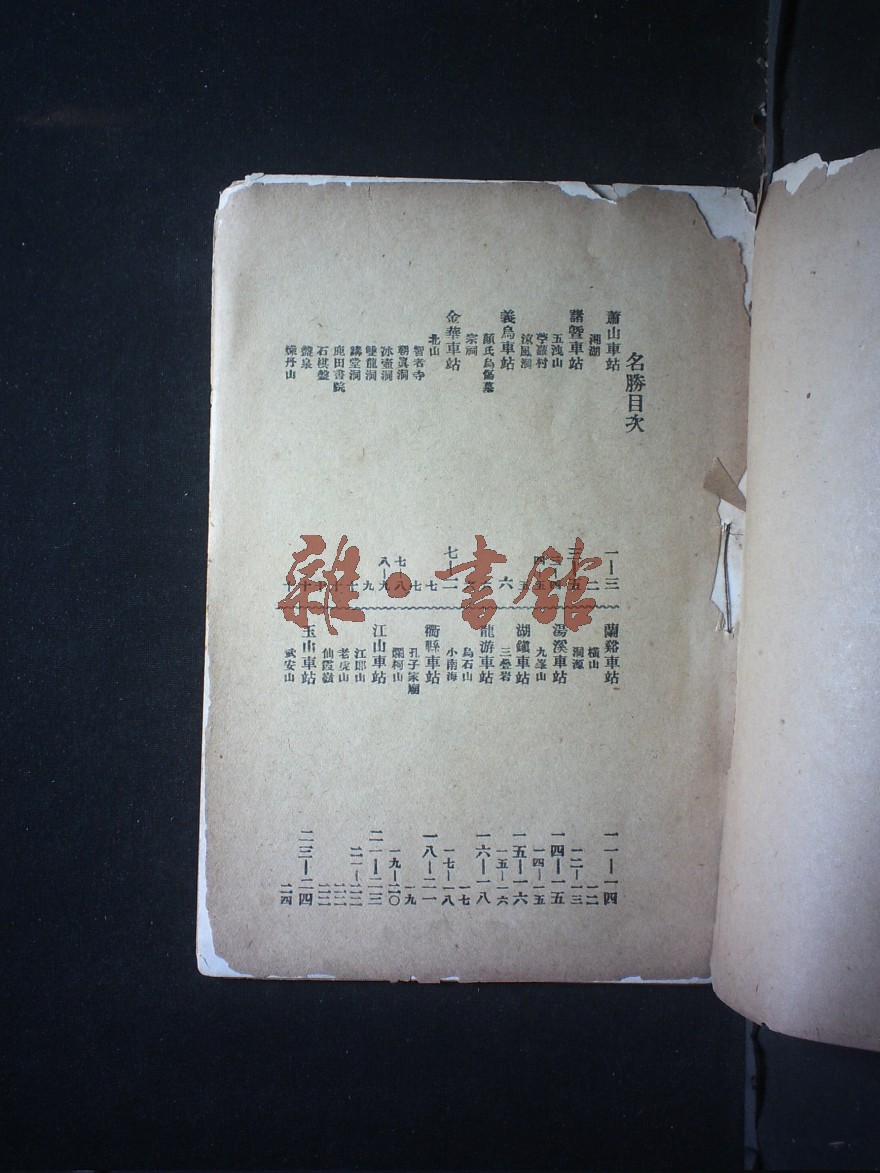 名勝目次
蕭山車站 一—三
湘湖 二
諸暨車站 三—五
五洩山 三—四
苧蘿村 四—五
涼風洞 五
義烏車站 六
顏氏烏傷墓
宗祠
金華車站 七—
北山 七
智者寺 七
朝眞洞 七—八
冰壺洞 八—九
雙龍洞 九
講堂洞 十
鹿田書院 十
石棋盤
盤泉
煉丹山
蘭谿車站 一一—一四
橫山 一二
洞源 一二—一三
湯溪車站 一四—一五
九峯山 一四—一五
湖鎭車站 一五—一六
三疊岩 一五—一六
龍游車站 一六—一八
烏石山 一七
小南海 一七—一八
衢縣車站 一八—二一
孔子家廟 一九
爛柯山 一九—二〇
江山車站 二一—二三
江郎山 二一—二二
老虎山 二二
仙霞嶺 二二
玉山車站 二三—二四
武安山 二四
雜·書館